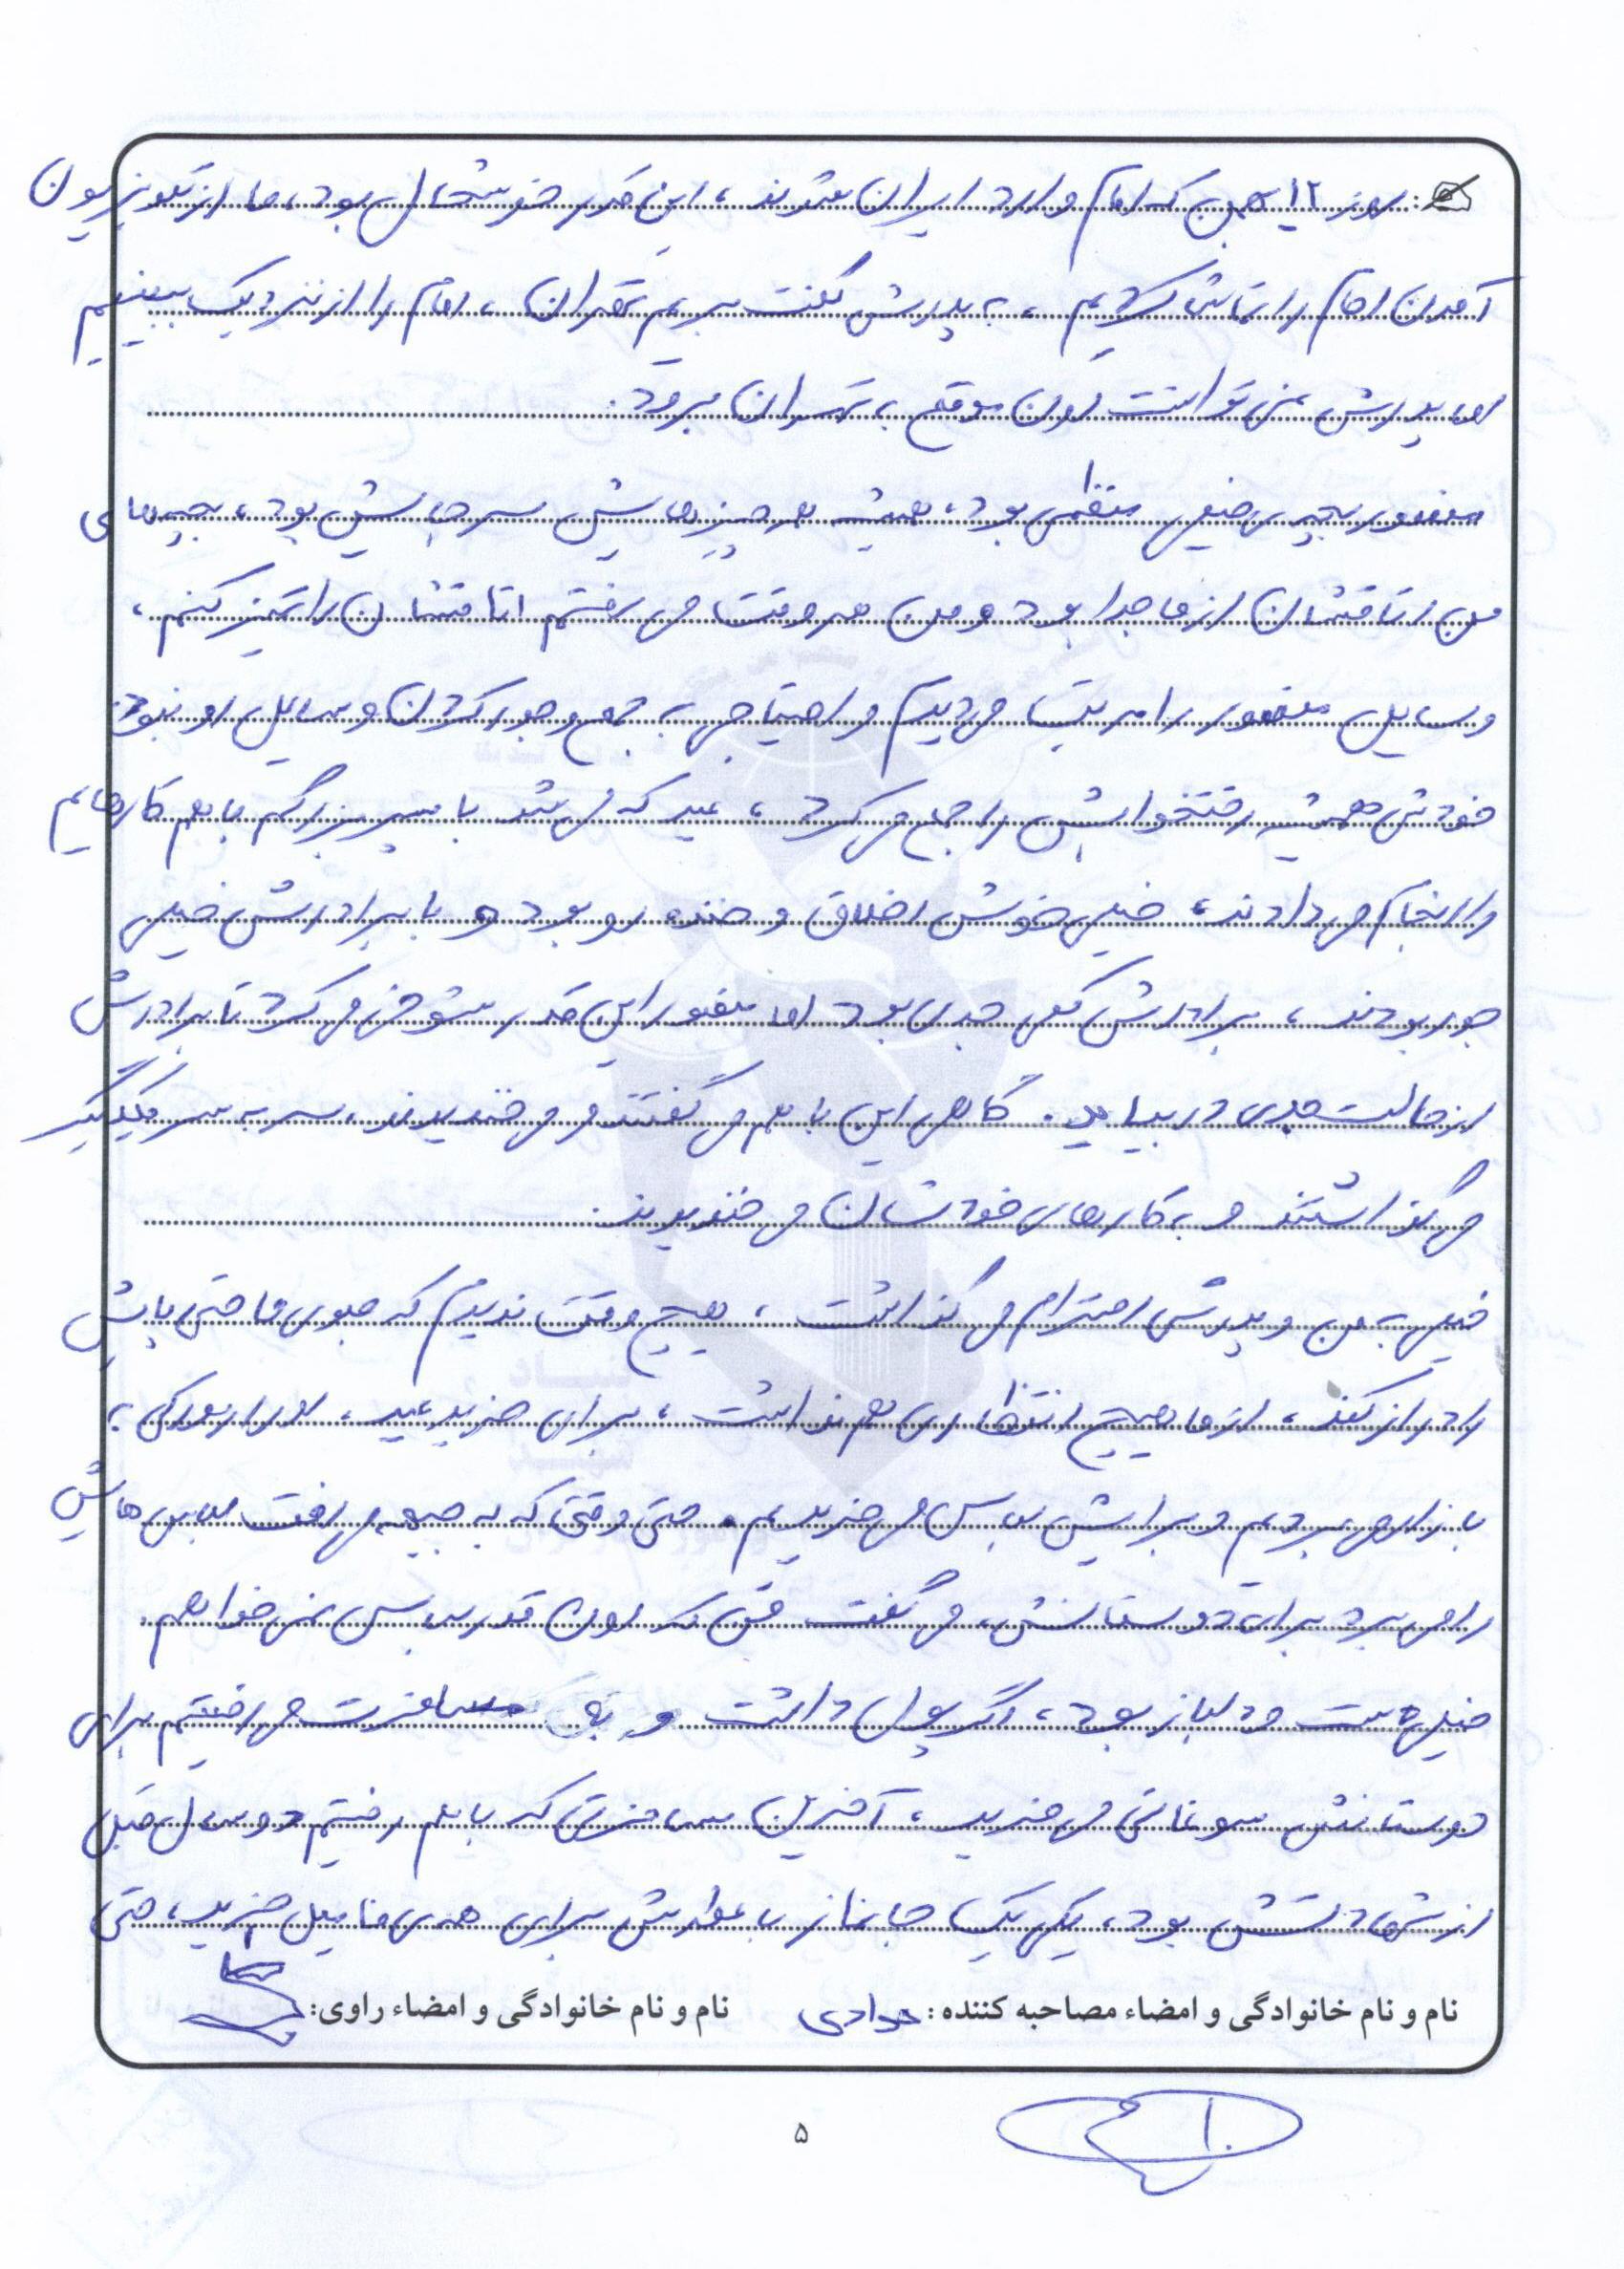 روز ۱۲ بهمن که امام وارد ایران شدند، این قدر خوشحال بود، ما از تلویزیون
آمدن امام را تماشا کردیم، به پدرش گفت بریم تهران، امام را از نزدیک ببینیم
اما پدرش نمی توانست اون موقع به تهران برود.
منصور بچه ی خیلی منظمی بود، همیشه هر چیزهایش سر جایش بود، بچه های
من اتاقشان از ما جدا بود و من هر وقت می رفتم اتاقشان را تمیز کنم،
وسایل منصور را مرتب می دیدم و احتیاجی به جمع و جور کردن وسایل او نبود.
خودش همیشه رختخوابش را جمع می کرد، عید که می شد با پسر بزرگم با هم کارهایم
را انجام می دادند، خیلی خوش اخلاق و خنده رو بود و با برادرش خیلی
جور بودند، برادرش کمی جدی بود اما منصور این قدر شوخی می کرد تا برادرش
از حالت جدی در بیاید. گاهی این با هم می گفتند و می خندیدند، سر به سر یکدیگر
می گذاشتند و به کارهای خودشان می خندیدند.
خیلی به من و پدرش احترام می گذاشت، هیچ وقت ندیدم که جلوی ما حتی پایش
را دراز کند، از ما هیچ انتظاری هم نداشت، برای خرید عید، او را زورکی به
بازار می بردیم و برایش لباس می خریدیم. حتی وقتی که به جبهه می رفت لباس هایش
را می برد برای دوستانش، می گفت من که اون قدر لباس نمی خواهم.
خیلی دست و دلباز بود، اگر پول داشت و مسافرت می رفتیم برای
دوستانش سوغاتی می خرید، آخرین مسافرتی که با هم رفتیم دو سال قبل
از شهادتش بود، یکی یک جانماز با پولش برای همه ی فامیل خرید، حتی
نام و نام خانوادگی و امضاء مصاحبه کننده: جوادی نام و نام خانوادگی و امضاء راوی:
۵